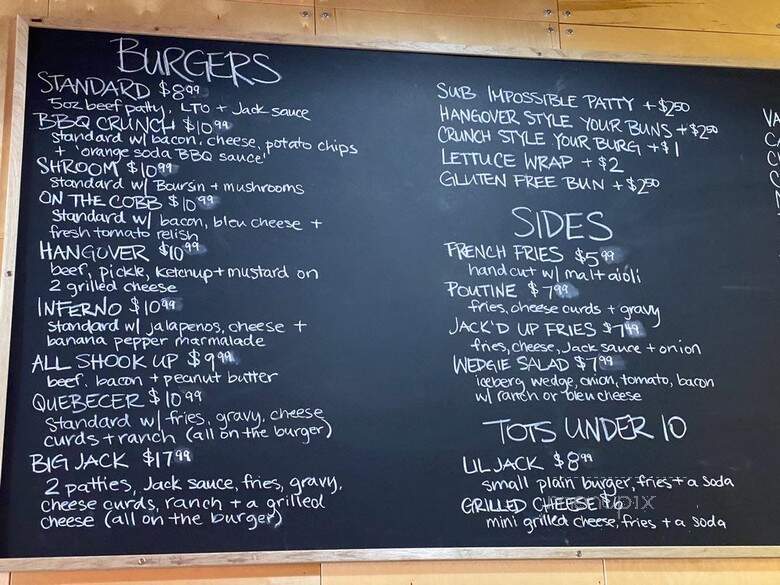 BURGERS
STANDARD $8.99
5oz beef patty, LTO + Jack sauce
BBQ CRUNCH $10.99
standard w/ bacon, cheese, potato chips
+ 'orange soda BBQ sauce'
SHROOM $10.99
standard w/ Boursin + mushrooms
ON THE COBB $10.99
standard w/ bacon, bleu cheese +
fresh tomato relish
HANGOVER $10.99
beef, pickle, ketchup + mustard on
2 grilled cheese
INFERNO $10.99
standard w/ jalapenos, cheese +
banana pepper marmalade
ALL SHOOK UP $9.99
beef, bacon + peanut butter
QUEBECER $10.99
standard w/ fries, gravy, cheese
curds + ranch (all on the burger)
BIG JACK $17.99
2 patties, Jack sauce, fries, gravy,
cheese curds, ranch + a grilled
cheese (all on the burger)
SUB IMPOSSIBLE PATTY + $2.50
HANGOVER STYLE YOUR BUNS + $2.50
CRUNCH STYLE YOUR BURG + $1
LETTUCE WRAP + $2
GLUTEN FREE BUN + $2.50
SIDES
FRENCH FRIES $5.99
hand cut w/ malt aioli
POUTINE $7.99
fries, cheese curds + gravy
JACK'D UP FRIES $7.99
fries, cheese, Jack sauce + onion
WEDGIE SALAD $7.99
iceberg wedge, onion, tomato, bacon
w/ ranch or bleu cheese
TOTS UNDER 10
LIL JACK $8.99
small plain burger, fries + a soda
GRILLED CHEESE $6
mini grilled cheese, fries + a soda
menupix